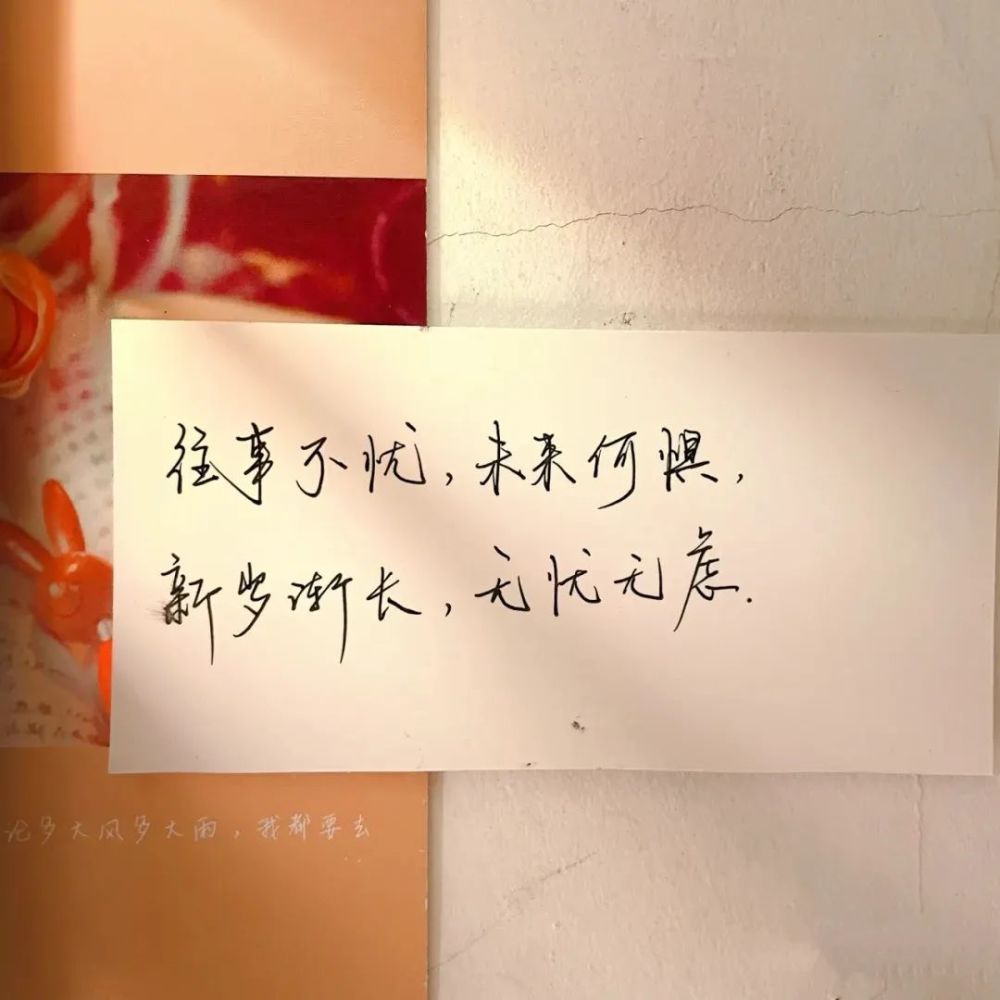 往事不忧,未来何惧,
新岁渐长,无忧无虑.
论多大风多大雨,我都要去